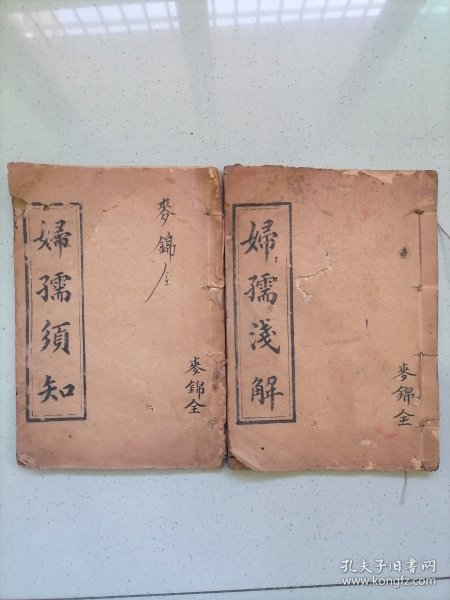 婦孺須知
麥錦全
麥錦全
婦孺淺解
麥錦全
孔夫子旧书网
www.kongfz.com